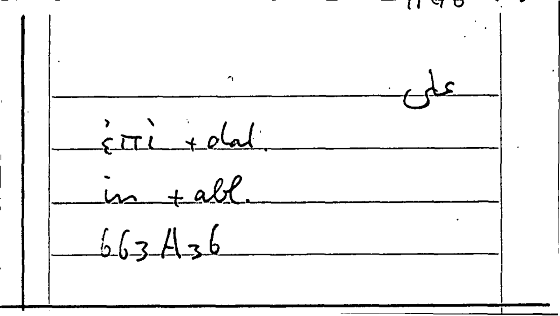 على
ἐπὶ + dat.
in + abl.
663A36